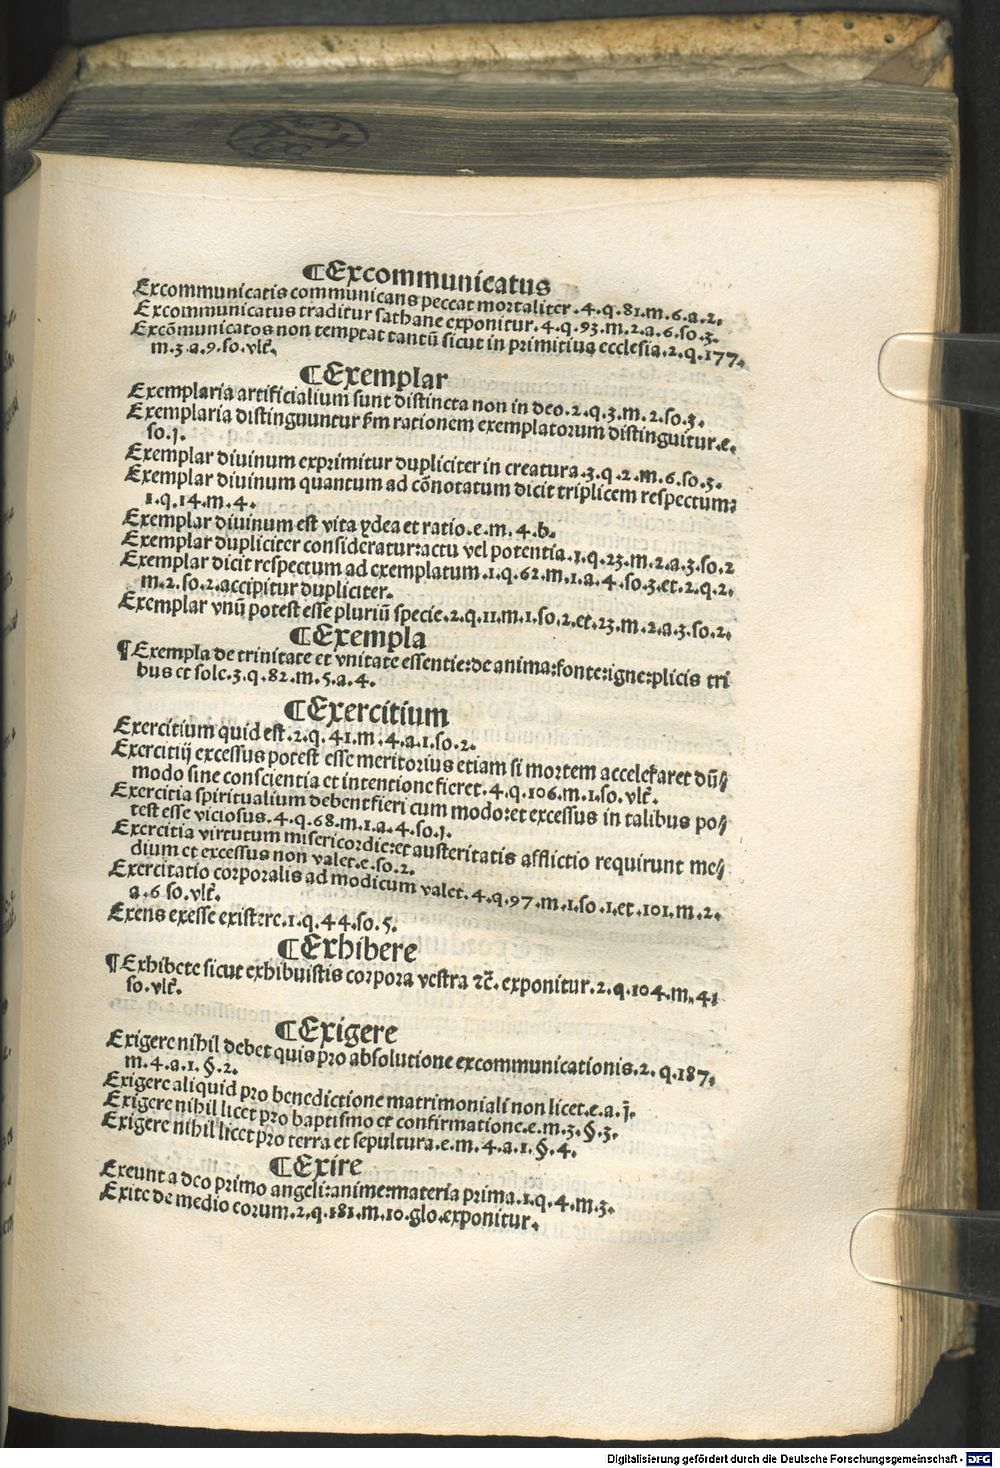 ¶Excommunicatus
Excommunicatis communicans peccat mortaliter.4.q.81.m.6.a.2.
Excommunicatus traditur sathane exponitur.4.q.93.m.2.a.6.so.3.
Excõmunicatos non temptat tantũ sicut in primitiua ecclesia.2.q.177.
m.3.a.9.so.vlt̃.
¶Exemplar
Exemplaria artificialium sunt distincta non in deo.2.q.3.m.2.so.3.
Exemplaria distinguuntur ẜm rationem exemplatorum distinguitur.e.
so.j.
Exemplar diuinum exprimitur dupliciter in creatura.3.q.2.m.6.so.3.
Exemplar diuinum quantum ad cõnotatum dicit triplicem respectum:
1.q.14.m.4.
Exemplar diuinum est vita ydea et ratio.e.m.4.b.
Exemplar dupliciter consideratur:actu vel potentia.1.q.23.m.2.a.3.so.2
Exemplar dicit respectum ad exemplatum.1.q.62.m.1.a.4.so.3.et.2.q.2.
m.2.so.2.accipitur dupliciter.
Exemplar vnũ potest esse pluriũ specie.2.q.11.m.1.so.2.et.23.m.2.a.3.so.2.
¶Exempla
¶Exempla de trinitate et vnitate essentie:de anima:fonte:igne:plicis tri
bus et sole.3.q.82.m.5.a.4.
¶Exercitium
Exercitium quid est.2.q.41.m.4.a.1.so.2.
Exercitij excessus potest esse meritorius etiam si mortem acceleraret dũ⸗
modo sine conscientia et intentione fieret.4.q.106.m.1.so.vlt̃.
Exercitia spiritualium debent fieri cum modo:et excessus in talibus po⸗
test esse viciosus.4.q.68.m.1.a.4.so.j.
Exercitia virtutum misericordie:et austeritatis afflictio requirunt me⸗
dium et excessus non valet.e.so.2.
Exercitatio corporalis ad modicum valet.4.q.97.m.1.so.1.et.101.m.2.
a.6 so.vlt̃.
Exens exesse existere.1.q.44.so.5.
¶Exhibere
¶Exhibete sicut exhibuistis corpora vestra ⁊c̃.exponitur.2.q.104.m.4:
so.vlt̃.
¶Exigere
Exigere nihil debet quis pro absolutione excommunicationis.2.q.187.
m.4.a.1.§.2.
Exigere aliquid pro benedictione matrimoniali non licet.e.a.j.
Exigere nihil licet pro baptismo et confirmatione.e.m.3.§.3.
Exigere nihil licet pro terra et sepultura.e.m.4.a.1.§.4.
¶Exire
Exeunt a deo primo angeli:anime:materia prima.1.q.4.m.3.
Exite de medio eorum.2.q.181.m.10.glo.exponitur.
Digitalisierung gefördert durch die Deutsche Forschungsgemeinschaft - DFG